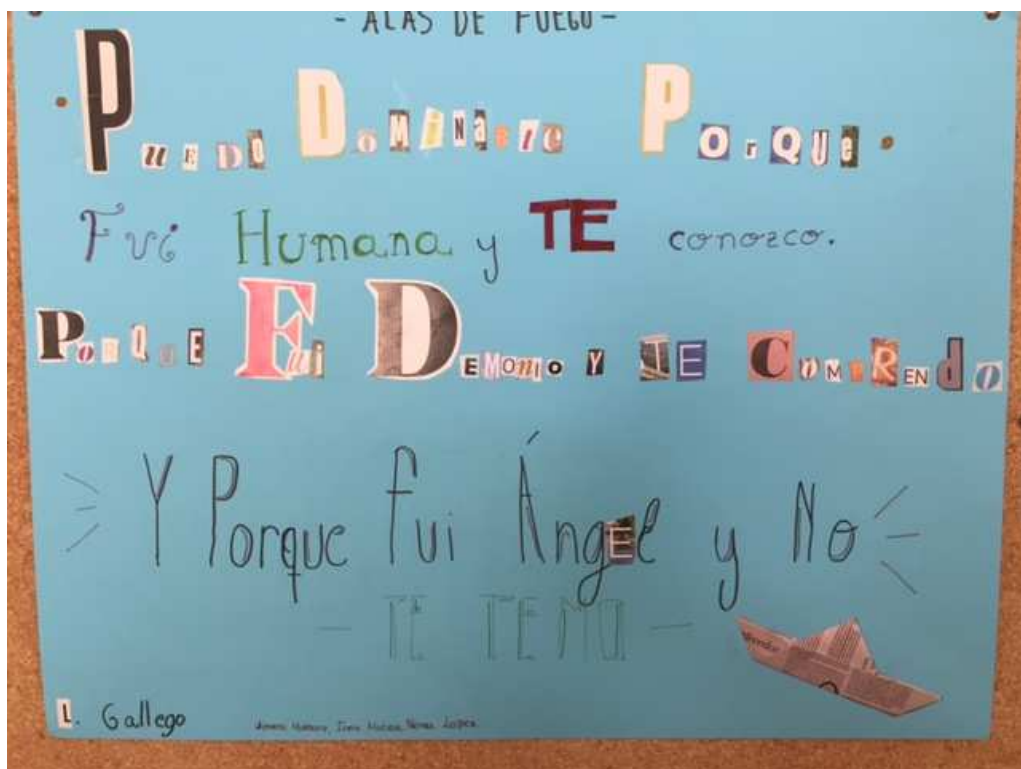 - ALAS DE FUEGO -
PUEDO DOMINARTE PORQUE
Fui Humana y TE conozco.
PORQUE Fui DEMONIO Y TE COMPRENdO
Y Porque fui Ángel y No
- TE TEMO -
L. Gallego